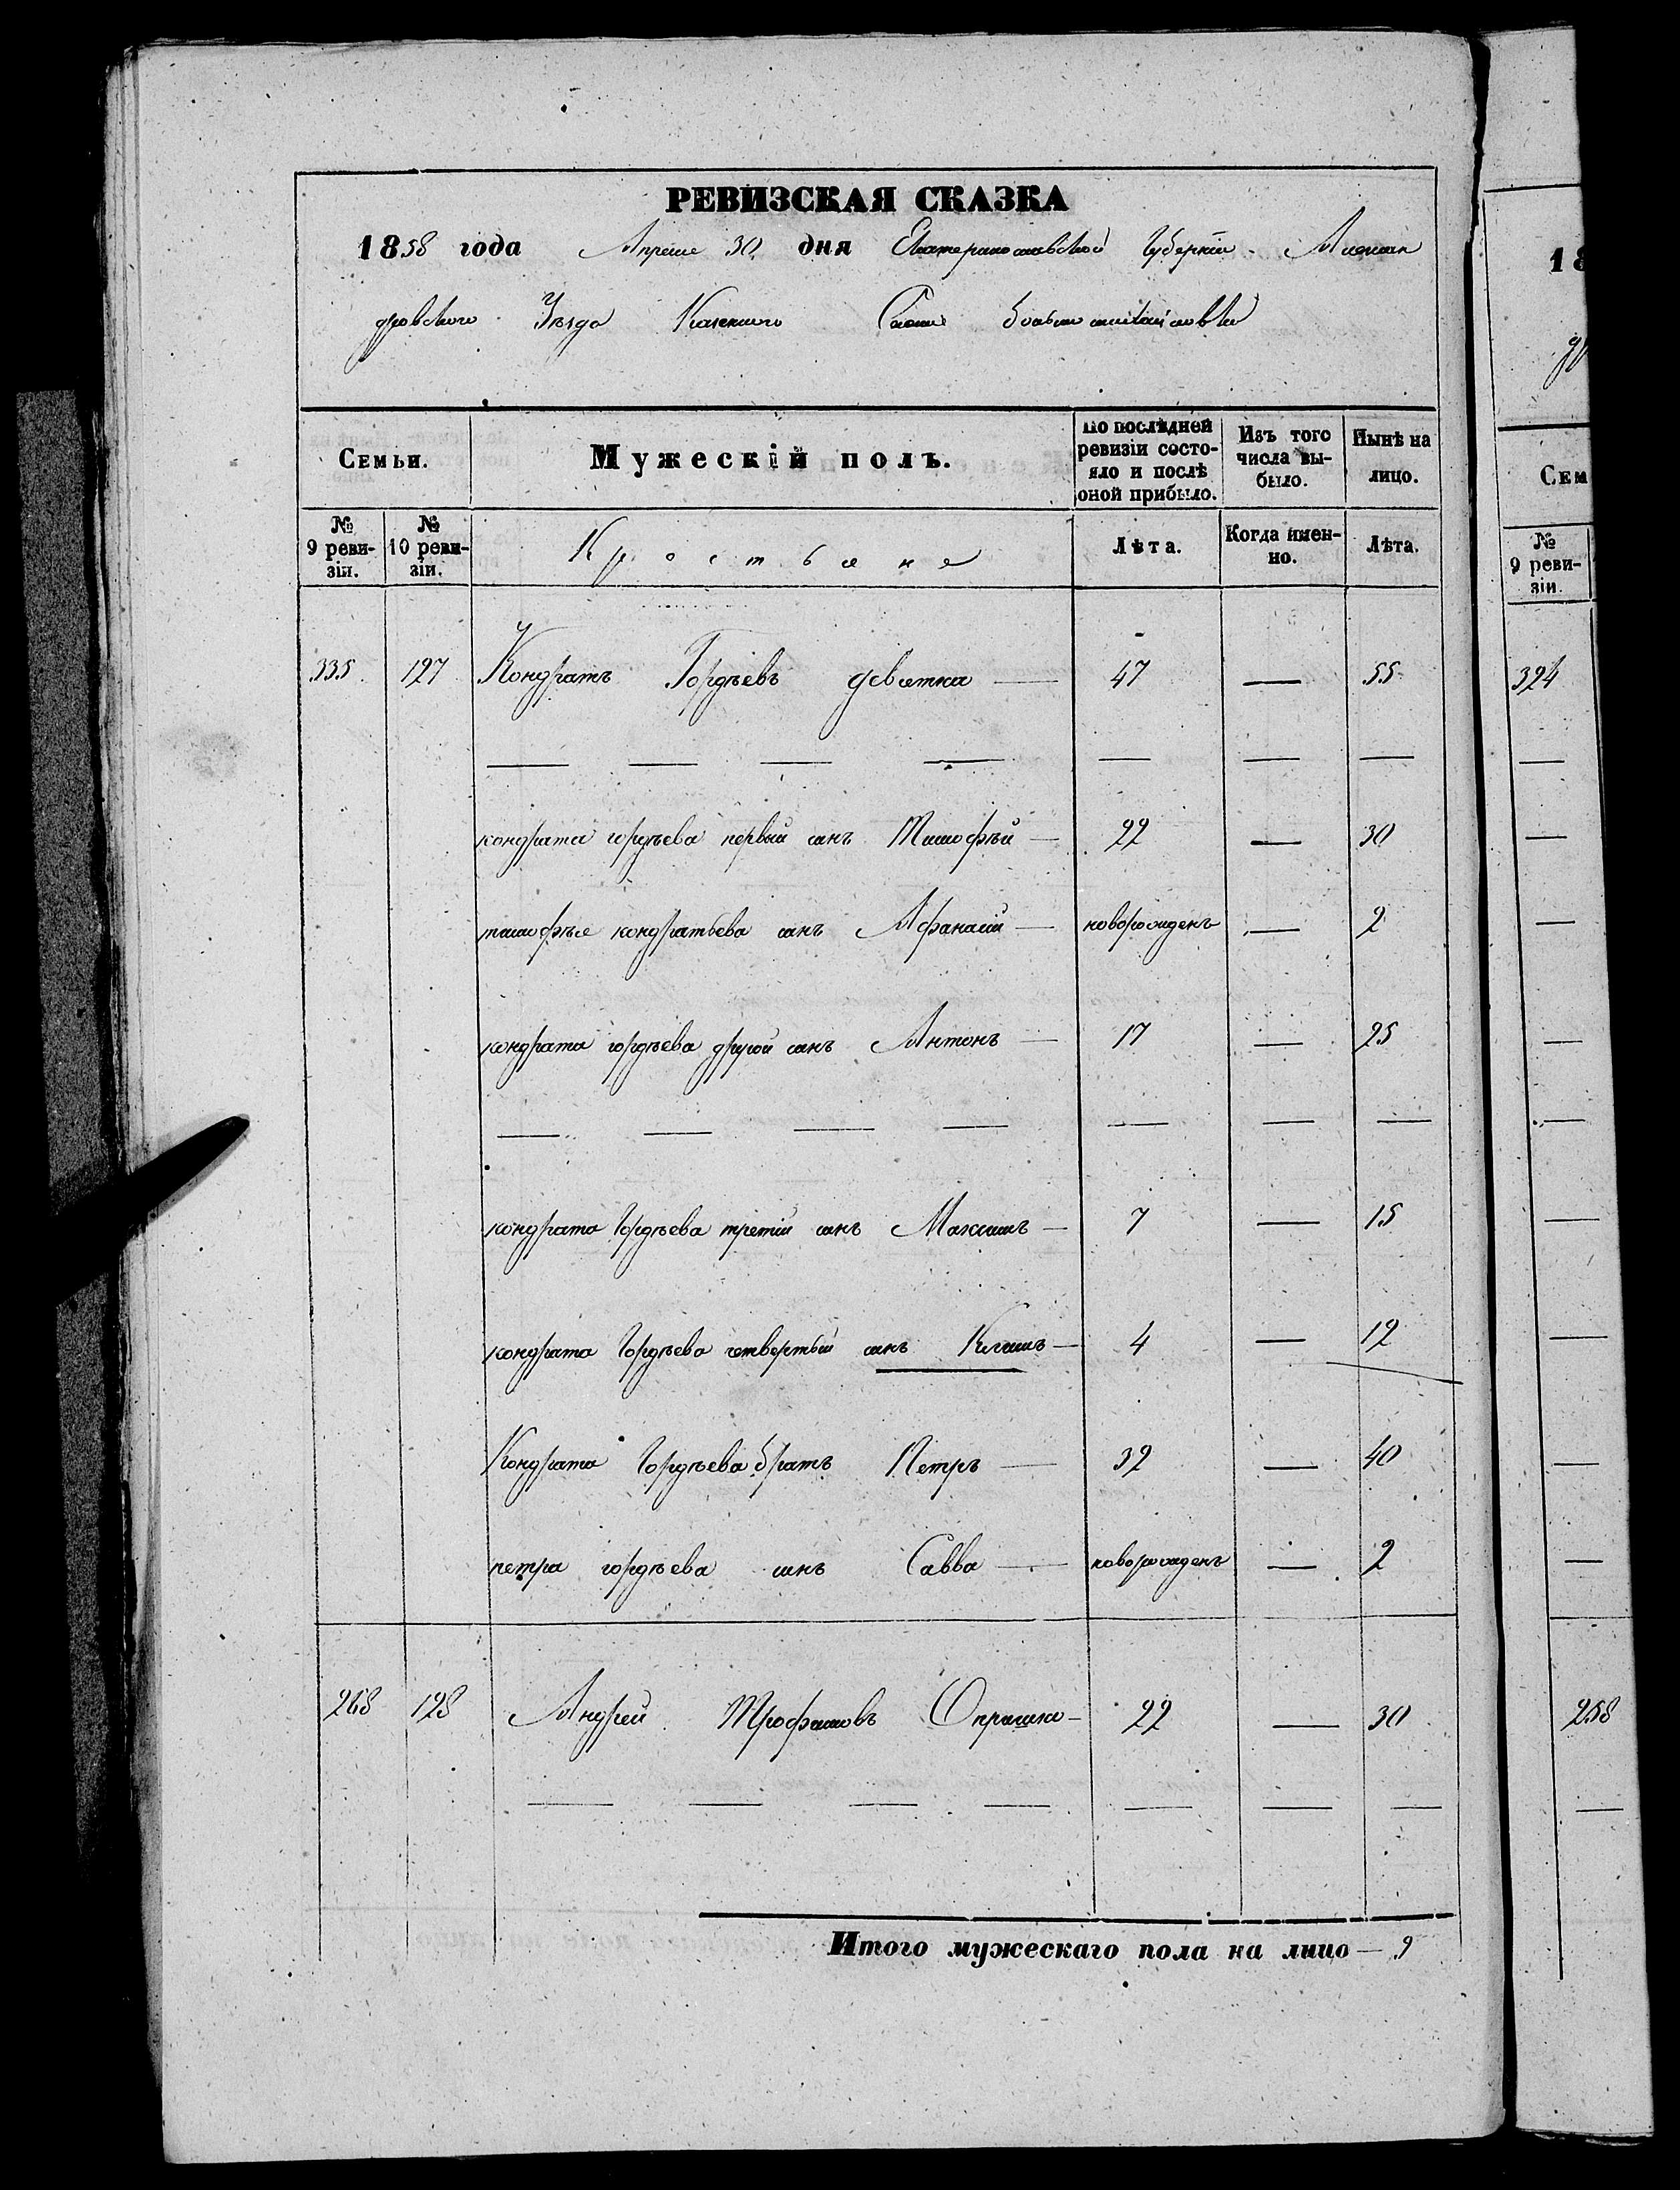 РЕВИЗСКАЯ СКАЗКА
1858 года Апреля 30 дня Екатеринославской Губерніи Алексан
дровского Уѣзда Казенного Села Большемихайловки
Семьи.
Мужескій полъ.
По послѣдней ревизіи состояло и послѣ оной прибыло.
Изъ того числа выбыло.
Нынѣ на лицо.
№ 9 ревизіи.
№ 10 ревизіи.
Крестьяне
Лѣта.
Когда именно.
Лѣта.
335. 127 Кондратъ Гордѣевъ девятка — 47 — 55
кондрата гордѣева первый синъ Тимофѣй — 22 — 30
тимофѣя кондратьева синъ Афанасий — новорожденъ — 2
кондрата гордѣева другой синъ Антонъ — 17 — 25
кондрата Гордѣева третий синъ Максимъ — 7 — 15
кондрата Гордѣева четвертый синъ Климъ — 4 — 12
Кондрата Гордѣева братъ Петръ — 32 — 40
петра гордѣева синъ Савва — новорожденъ — 2
258 128 Андрей Трофимовъ Опришко — 22 — 30
Итого мужескаго пола на лицо — 9
18
Сем
№ 9 ревизіи.
324
258